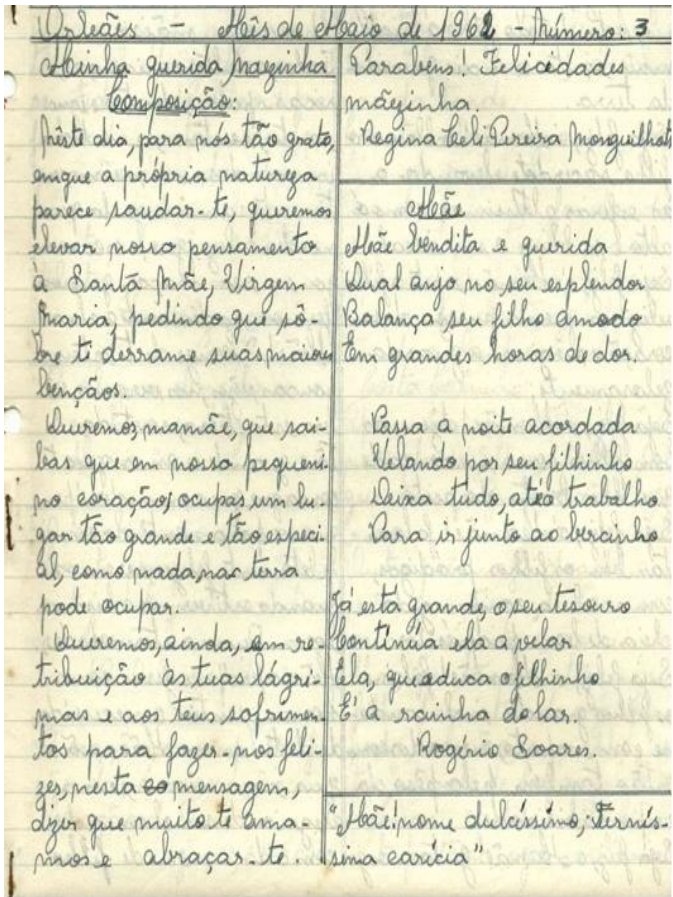 Orleães - Mês de Maio de 1962 - Número: 3
Minha querida mãezinha
Composição:
Nêste dia, para nós tão grato,
em que a própria natureza
parece saudar-te, queremos
elevar nosso pensamento
à Santa Mãe, Virgem
Maria, pedindo que sô-
bre ti derrame suas maiores
bençãos.
Queremos, mamãe, que sai-
bas que em nosso pequeni-
no coração, ocupas um lu-
gar tão grande e tão especi-
al, como nada, na terra
pode ocupar.
Queremos, ainda, em re-
tribuição às tuas lágri-
mas e aos teus sofrimen-
tos para fazer-nos feli-
zes, nesta mensagem,
dizer que muito te ama-
mos e abraçar-te.
Parabens! Felicidades
mãezinha.
Regina Celi Pereira Monguilhott
Mãe
Mãe bendita e querida
Qual anjo no seu esplendor
Balança seu filho amado
Em grandes horas de dor.
Passa a noite acordada
Velando por seu filhinho
Deixa tudo, até o trabalho
Para ir junto ao bercinho
Já está grande, o seu tesouro
Continúa ela a velar
Ela, que educa o filhinho
É a rainha do lar.
Rogério Soares.
"Mãe! nome dulcíssimo, Ternís-
sima carícia"